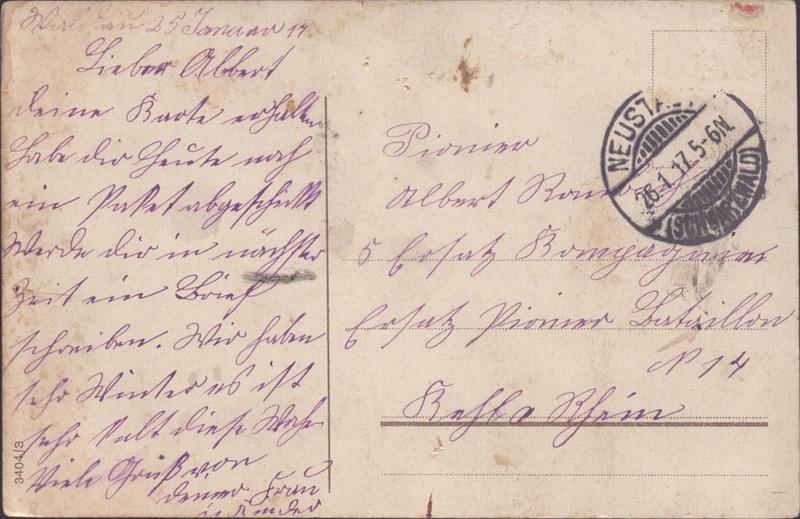 25 Januar 17.
Lieber Albert
deine Karte erhalten
habe dir Heute noch
ein Paket abgeschickt
Werde dir in nächster
Zeit ein Brief
schreiben. Wir haben
sehr Winter es ist
sehr kalt diese Woche
Viele Grüß von
deiner Frau
u Kinder
3404/3
Pionier
Albert
5 Ersatz Kompagnie
Ersatz Pionier Bataillon
N 14
Kehl a Rhein
NEUSTA
26.1.17.5-6N.
(SCHWARZWALD)